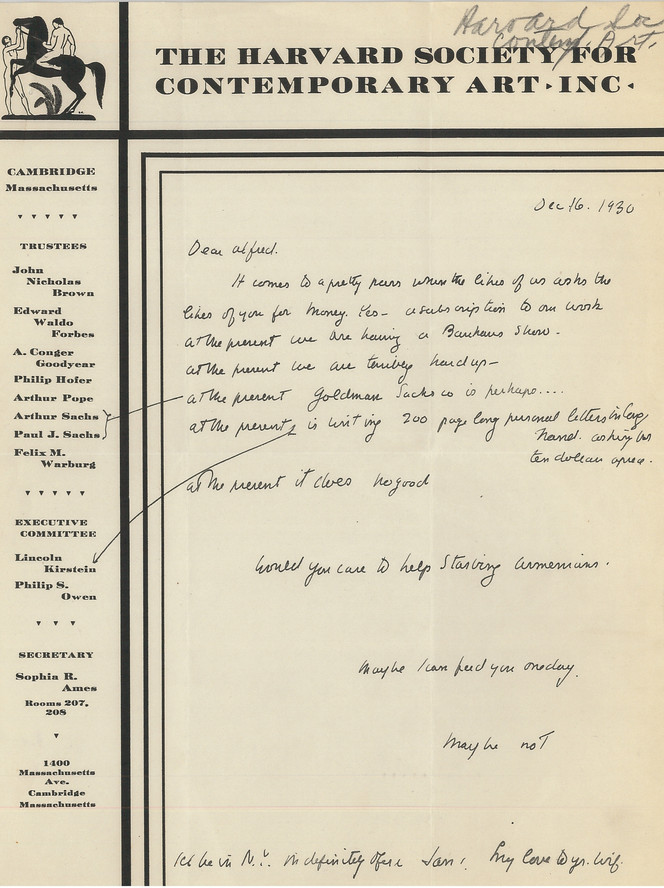 Harvard Soc
Contemp. Art.
THE HARVARD SOCIETY FOR
CONTEMPORARY ART · INC ·
CAMBRIDGE
Massachusetts
TRUSTEES
John
Nicholas
Brown
Edward
Waldo
Forbes
A. Conger
Goodyear
Philip Hofer
Arthur Pope
Arthur Sachs
Paul J. Sachs
Felix M.
Warburg
EXECUTIVE
COMMITTEE
Lincoln
Kirstein
Philip S.
Owen
SECRETARY
Sophia R.
Ames
Rooms 207,
208
1400
Massachusetts
Ave.
Cambridge
Massachusetts
Dec 16. 1930
Dear Alfred.
It comes to a pretty pass when the likes of us asks the
likes of you for money. Yes – a subscription to our work
at the present we are having a Bauhaus Show –
at the present we are terribly hard up –
at the present Goldman Sachs co is perhaps....
at the present, is writing 200 page long personal letters in long
hand. asking for
ten dollars apiece.
at the present it does no good
Would you care to help Starving Armenians.
Maybe I can feed you one day.
Maybe not
I'll be in N.Y. indefinitely after Jan 1. My love to yr. wife.